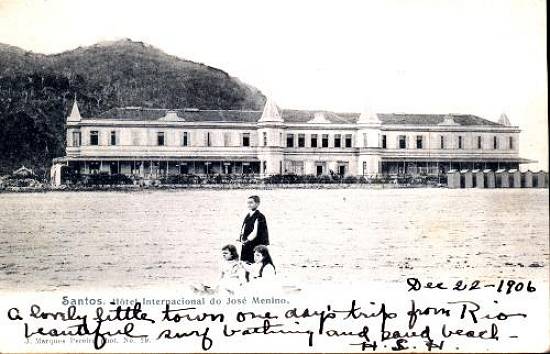 Dec 22-1906
Santos. Hôtel Internacional do José Menino.
A lovely little town one day's trip from Rio
beautiful surf bathing and sand beach -
J. Marques Pereira phot. No. 29.
H. S. H.